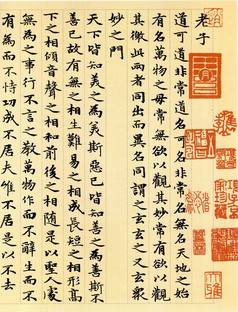 老子
道可道非常道名可名非常名無名天地之始
有名萬物之母常無欲以觀其妙常有欲以觀
其徼此兩者同出而異名同謂之玄玄之又玄衆
妙之門
天下皆知美之為美斯惡已皆知善之為善斯不
善已故有無之相生難易之相成長短之相形高
下之相傾音聲之相和前後之相隨是以聖人處
無為之事行不言之教萬物作而不辭生而不
有為而不恃功成不居夫惟不居是以不去